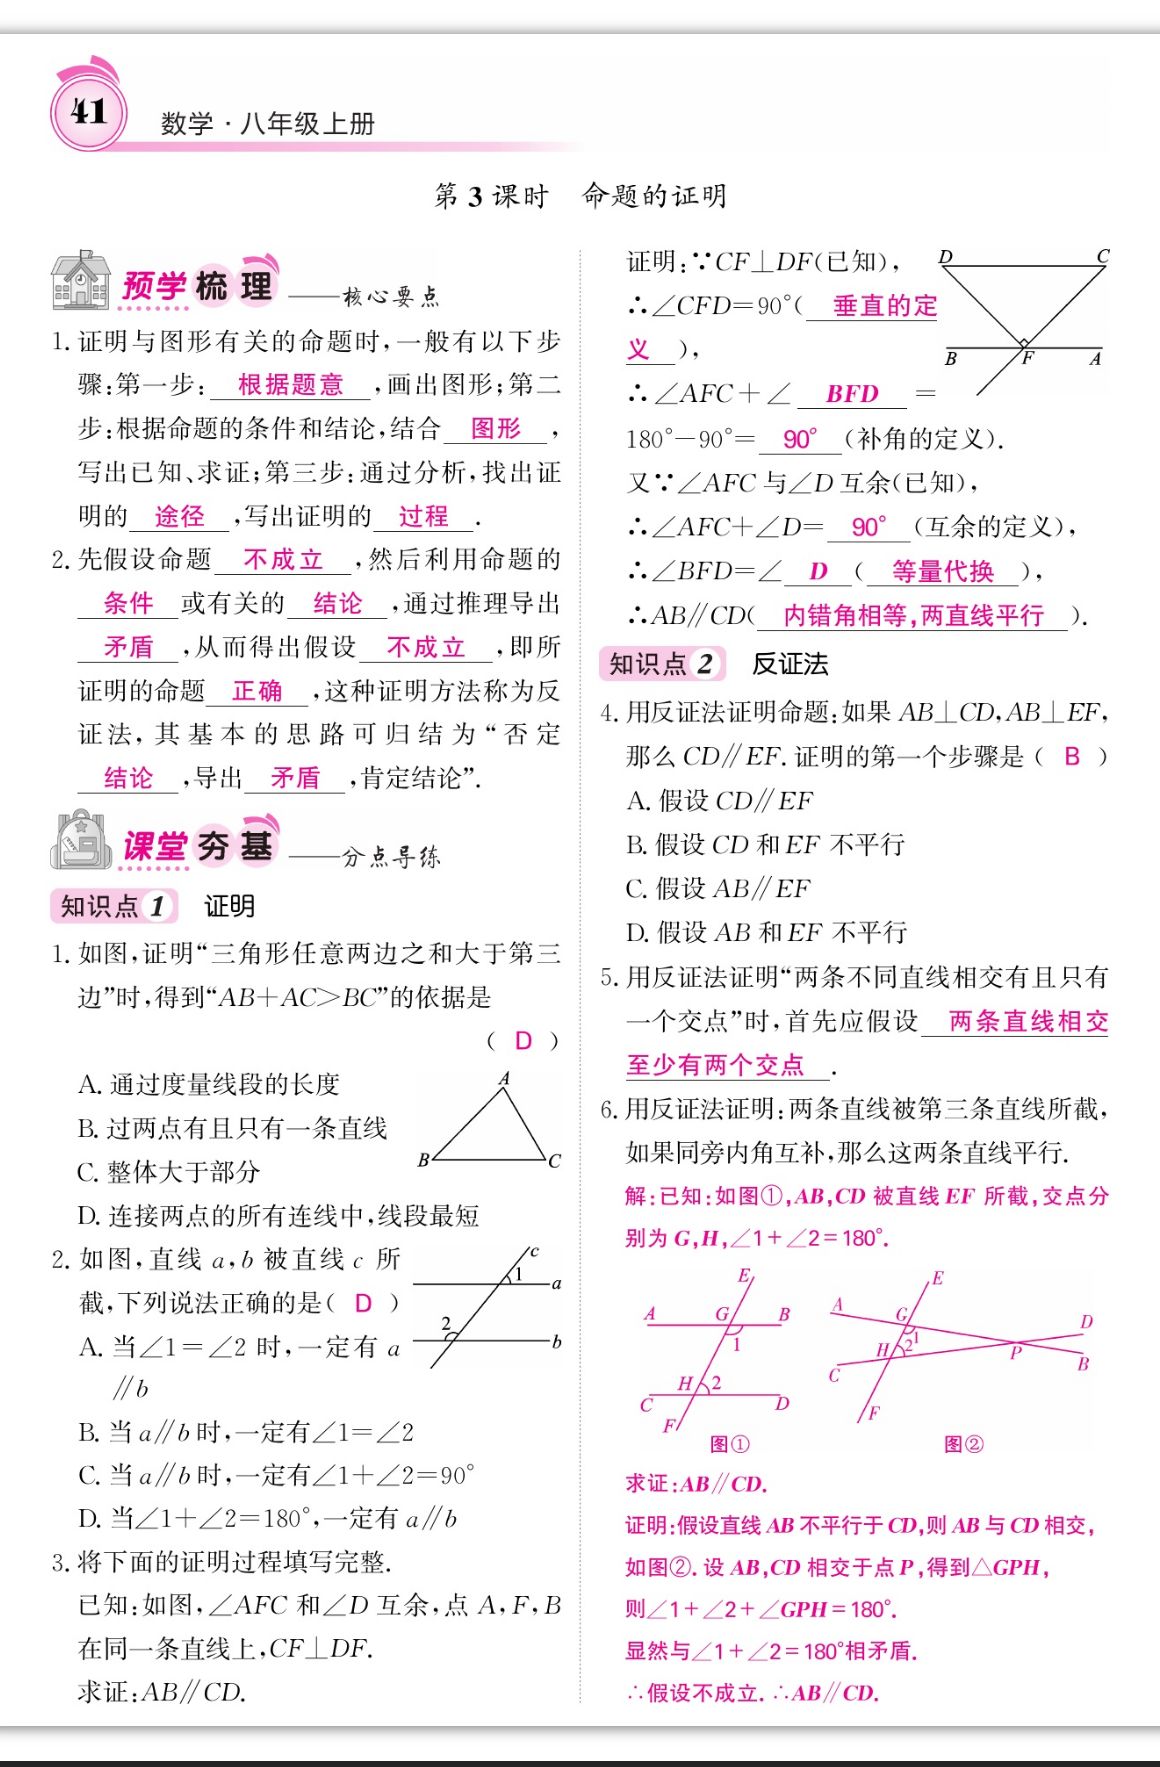 41
数学·八年级上册
第3课时 命题的证明
预学梳理 ——核心要点
1. 证明与图形有关的命题时,一般有以下步
骤:第一步: 根据题意 ,画出图形;第二
步:根据命题的条件和结论,结合 图形 ,
写出已知、求证;第三步:通过分析,找出证
明的 途径 ,写出证明的 过程 .
2. 先假设命题 不成立 ,然后利用命题的
条件 或有关的 结论 ,通过推理导出
矛盾 ,从而得出假设 不成立 ,即所
证明的命题 正确 ,这种证明方法称为反
证法,其基本的思路可归结为“否定
结论 ,导出 矛盾 ,肯定结论”.
课堂夯基 ——分点导练
知识点1 证明
1. 如图,证明“三角形任意两边之和大于第三
边”时,得到“AB+AC>BC”的依据是
( D )
A. 通过度量线段的长度
B. 过两点有且只有一条直线
C. 整体大于部分
D. 连接两点的所有连线中,线段最短
A
B
C
2. 如图,直线 a,b 被直线 c 所
截,下列说法正确的是( D )
A. 当∠1=∠2 时,一定有 a
∥b
B. 当 a∥b 时,一定有∠1=∠2
C. 当 a∥b 时,一定有∠1+∠2=90°
D. 当∠1+∠2=180°,一定有 a∥b
c
1
a
2
b
3. 将下面的证明过程填写完整.
已知:如图,∠AFC 和∠D 互余,点 A,F,B
在同一条直线上,CF⊥DF.
求证:AB∥CD.
证明:∵CF⊥DF(已知),
∴∠CFD=90°( 垂直的定
义 ),
∴∠AFC+∠ BFD =
180°-90°= 90° (补角的定义).
又∵∠AFC 与∠D 互余(已知),
∴∠AFC+∠D= 90° (互余的定义),
∴∠BFD=∠ D ( 等量代换 ),
∴AB∥CD( 内错角相等,两直线平行 ).
D
C
B
F
A
知识点2 反证法
4. 用反证法证明命题:如果 AB⊥CD,AB⊥EF,
那么 CD∥EF. 证明的第一个步骤是( B )
A. 假设 CD∥EF
B. 假设 CD 和 EF 不平行
C. 假设 AB∥EF
D. 假设 AB 和 EF 不平行
5. 用反证法证明“两条不同直线相交有且只有
一个交点”时,首先应假设 两条直线相交
至少有两个交点 .
6. 用反证法证明:两条直线被第三条直线所截,
如果同旁内角互补,那么这两条直线平行.
解:已知:如图①,AB,CD 被直线 EF 所截,交点分
别为 G,H,∠1+∠2=180°.
E
A
G
B
1
H
2
C
D
F
图①
E
A
G
D
1
H
2
P
B
C
F
图②
求证:AB∥CD.
证明:假设直线 AB 不平行于 CD,则 AB 与 CD 相交,
如图②. 设 AB,CD 相交于点 P,得到△GPH,
则∠1+∠2+∠GPH=180°.
显然与∠1+∠2=180°相矛盾.
∴假设不成立. ∴AB∥CD.